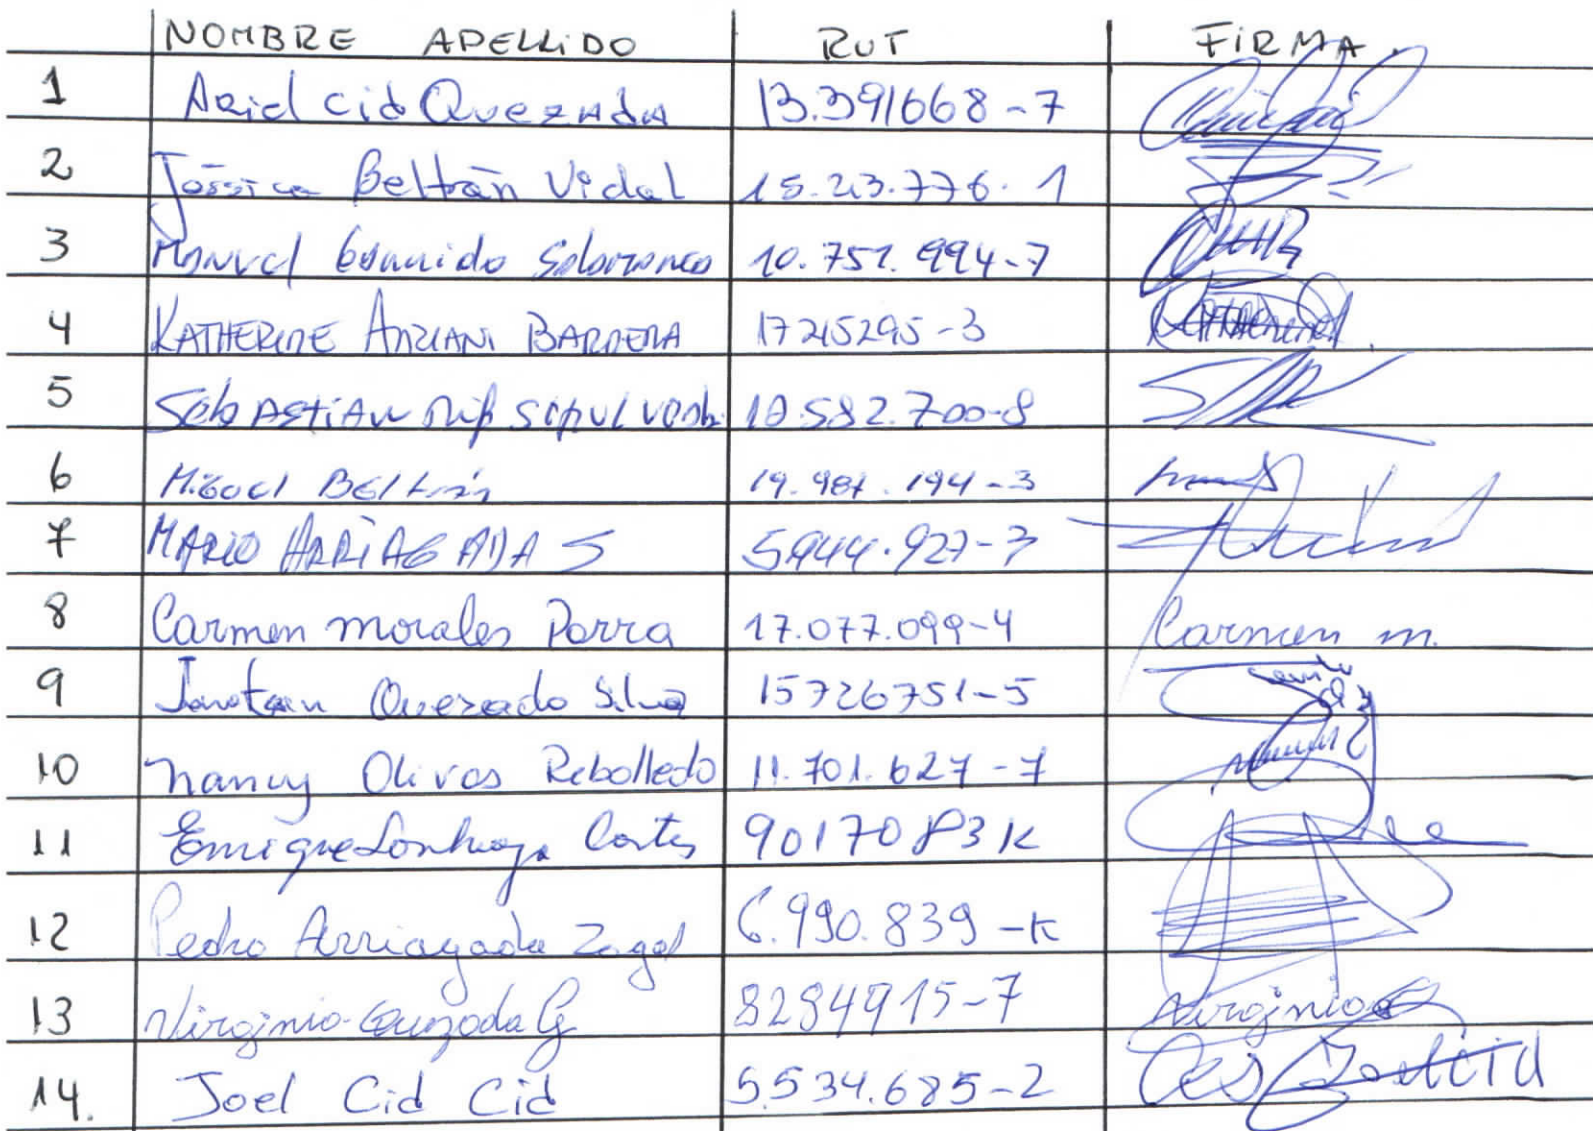 NOMBRE APELLIDO RUT FIRMA.
1 Ariel Cid Quezada 13.391668-7
2 Jéssica Beltrán Vidal 15.213.776.1
3 Manuel Garrido Salamanca 10.751.994-7
4 KATHERINE ANZIANI BARRERA 17215295-3 KATHERINE
5 Sebastian 10.582.700-8
6 Miguel Beltrán 19.981.194-3
7 MARIO ARRIAGADA S 5944.927-3
8 Carmen Morales Parra 17.077.099-4 Carmen m.
9 Jonatan Quezada Silva 15726751-5
10 Nancy Olivas Rebolledo 11.701.627-7
11 Enrique Cortes 9017083K
12 Pedro Arriagada Zagal 6.990.839-K
13 Virginia Quezada G 8284915-7 Virginia
14. Joel Cid Cid 5.534.685-2 Joel Cid